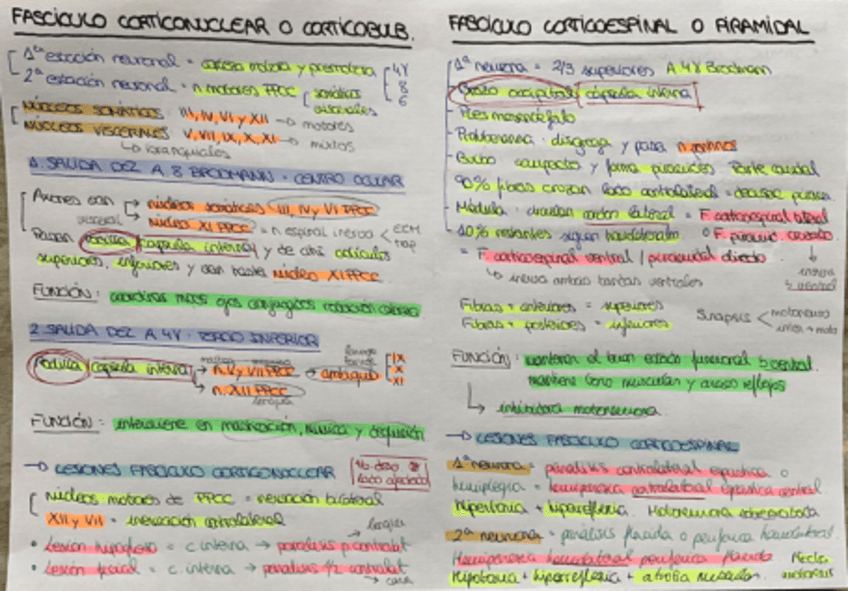 FASCÍCULO CORTICONUCLEAR O CORTICOBULB.
1ª estación neuronal = corteza motora y premotora
2ª estación neuronal = n motores PPCC
somáticos
viscerales
4Y
8
6
NÚCLEOS SOMÁTICOS III, IV, VI y XII → motores
NÚCLEOS VISCERALES V, VII, IX, X, XI → mixtos
↳ branquiales
1. SALIDA DEL A. 8 BRODMANN - CENTRO OCULAR
Axones van → núcleos somáticos III, IV y VI PPCC
visceral → núcleo XI PPCC = n espinal inerva < ECM
trap
Pasan rodilla cápsula interna y de ahí colículos
superiores, inferiores y van hasta núcleo XI PPCC
FUNCIÓN: coordinar movs ojos conjugados rotación cabeza
2 SALIDA DEL A 4Y - TERCIO INFERIOR
Rodilla cápsula interna
→ n. V y VII PPCC → ambiguo
IX
X
XI
→ n. XII PPCC
lengua
FUNCIÓN = interviene en masticación, mímica y deglución
→ LESIONES FASCÍCULO CORTICONUCLEAR
lado afectado
núcleos motores de PPCC = inervación bilateral
XII y VII = inervación contralateral
• Lesión hipogloso = c interna → parálisis p contralat
→ lengua
• Lesión facial = c. interna → parálisis 1/2 contralat
→ cara
FASCÍCULO CORTICOESPINAL O PIRAMIDAL
1ª neurona = 2/3 superiores A 4Y Brodmann
Brazo occipital cápsula interna
- Pies mesencéfalo
- Protuberancia · disgrega y pasa n
- Bulbo · compacto y forma pirámides. Parte caudal
90% fibras cruzan lado contralateral =
- Médula · circulan cordón lateral = F. corticoespinal lateral
o F. piramidal cruzado
10% restantes siguen homolateralm
= F. corticoespinal ventral / piramidal directo
↳ inerva ambas ventrales
Fibras + anteriores = superiores
Fibras + posteriores = inferiores
Sinapsis < motoneurona
FUNCIÓN: mantener el buen estado funcional
mantiene tono muscular y arcos reflejos
↳ inhibidora motoneurona
→ LESIONES FASCÍCULO CORTICOESPINAL
1ª neurona = parálisis contralateral espástica o
hemiplegia = hemiparesia contralateral espástica central
hipertonía + hiperreflexia. Motoneurona
2ª neurona = parálisis flácida o periférica homolateral
Hemiparesia homolateral periférica flácida
Hipotonía + hiporreflexia + atrofia muscular.